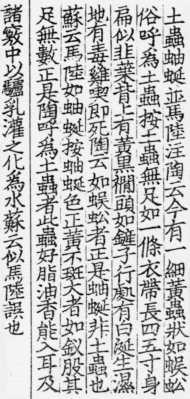 土蟲蚰蜒並馬陸注陶云今有一細黃蟲狀如蜈蚣
俗呼為土蟲按土蟲無足如一條衣帶長四五寸身
扁似韭葉背上有黃黑襴頭如鏟子行處有白涎生濕
地有毒雞喫即死陶云如蜈蚣者正是蚰蜒非土蟲也
蘇云馬陸如蚰蜒按蚰蜒色正黃不斑大者如釵股其
足無數正是陶呼為土蟲者此蟲好脂油香能入耳及
諸竅中以驢乳灌之化為水蘇云似馬陸誤也